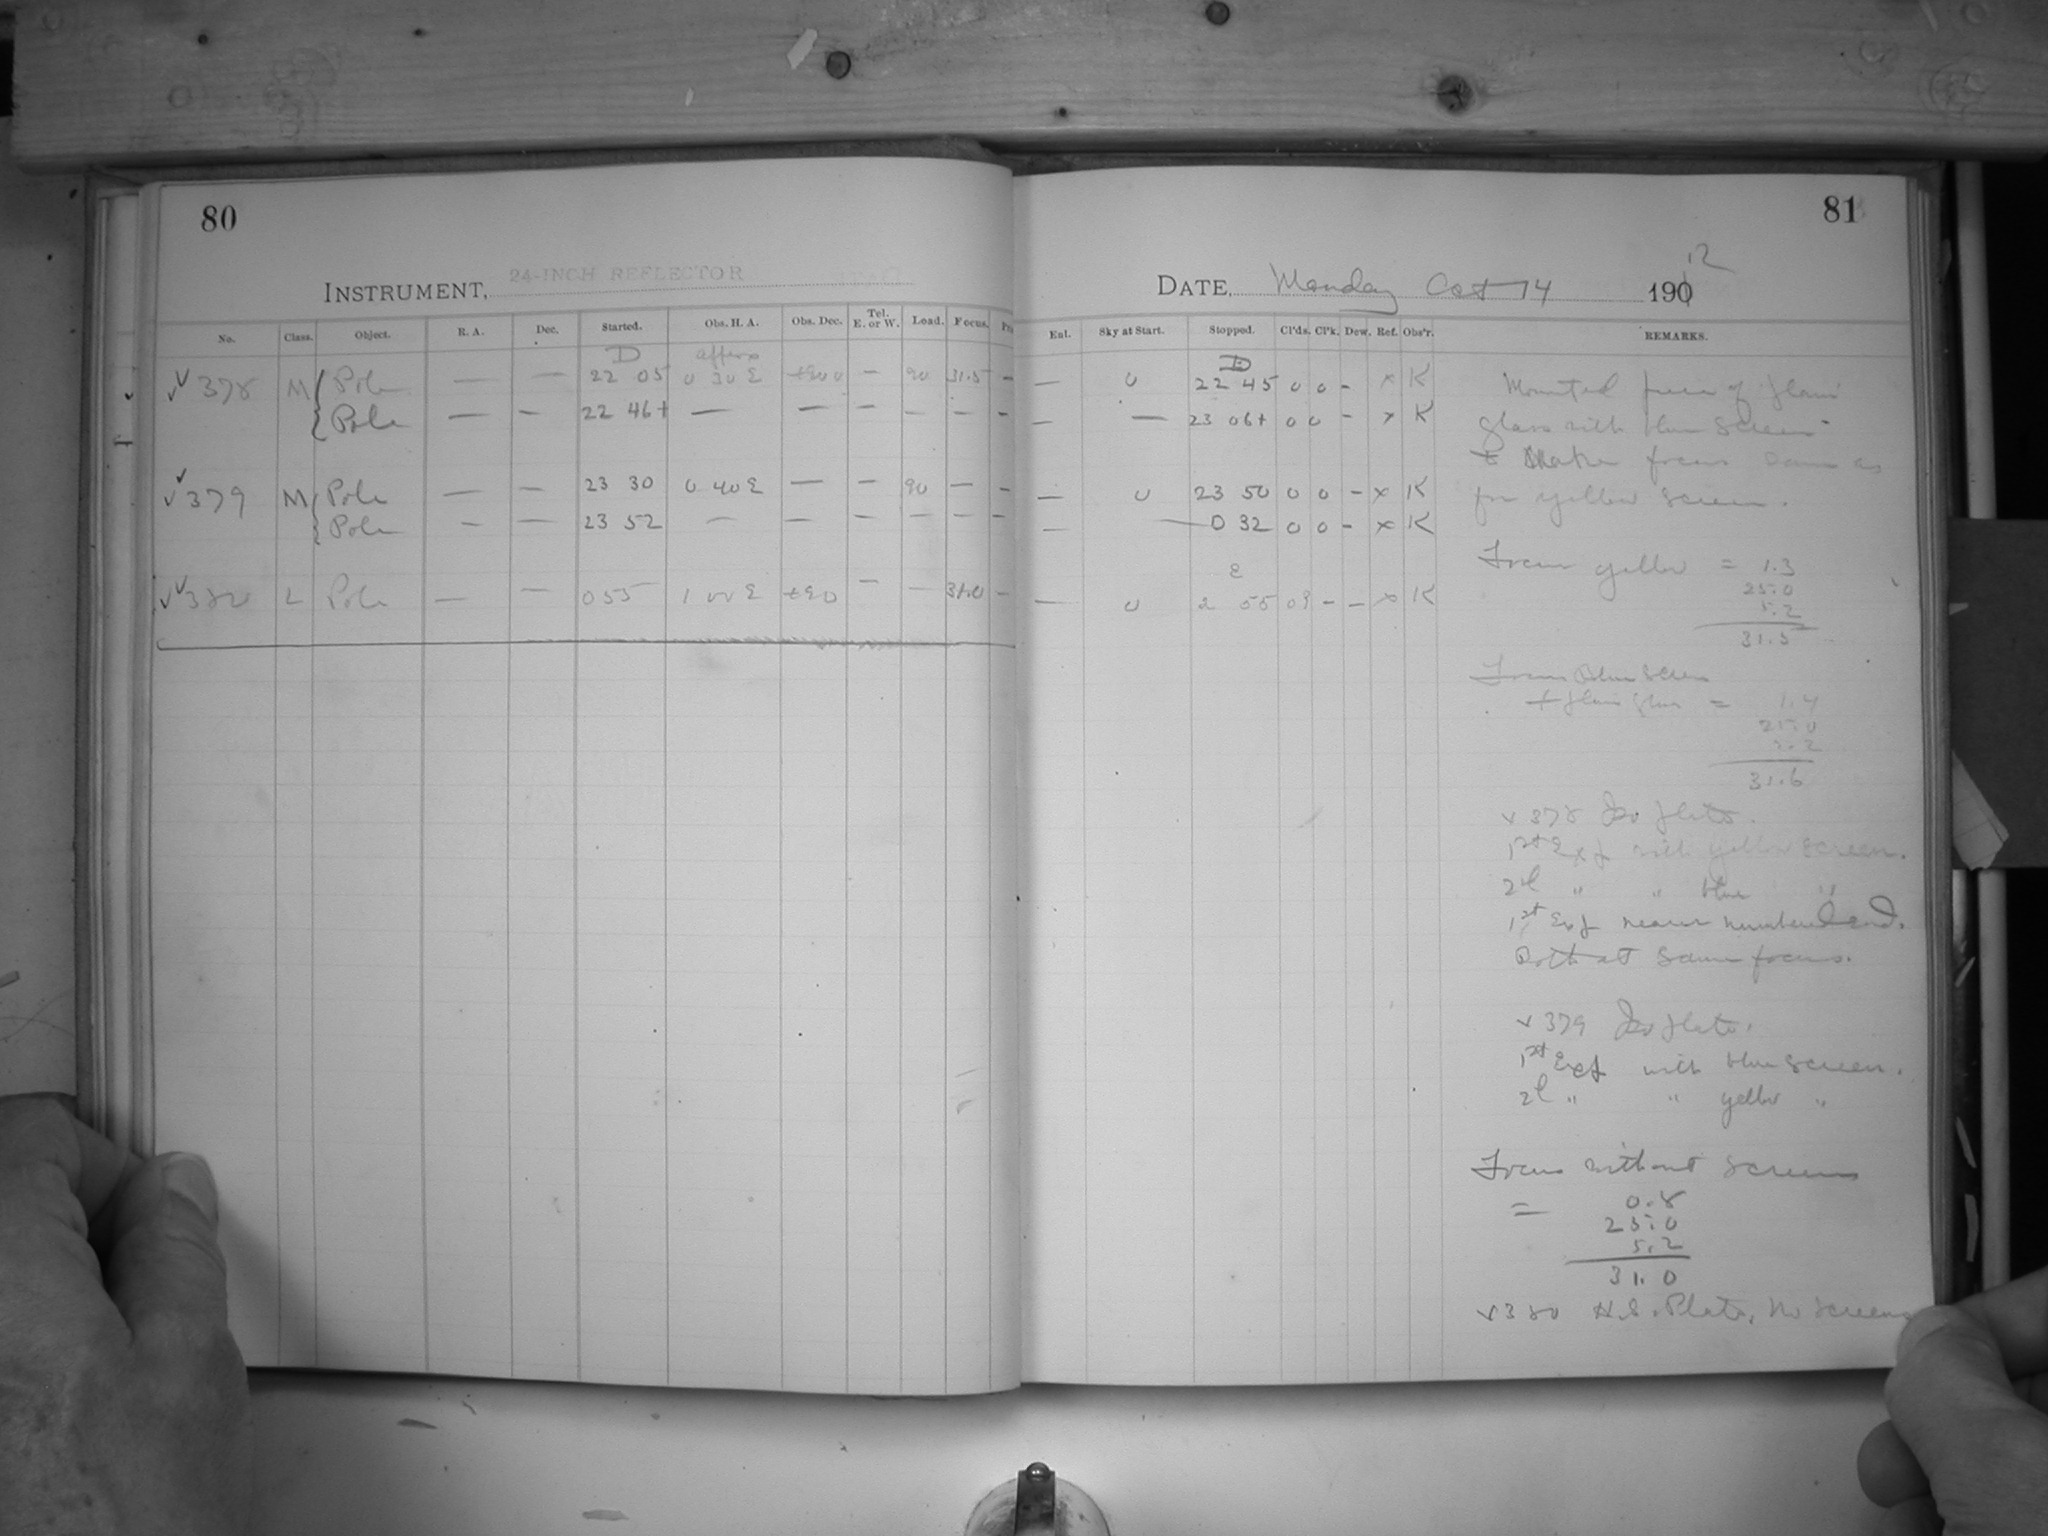 80
INSTRUMENT, 24-INCH REFLECTOR
No. Class. Object. R. A. Dec. Started. Obs. H. A. Obs. Dec. Tel. E. or W. Load. Focus.
D approx
√ 378 M Pole — — 22 05 0 30 E +90 0 — 90 31.5 —
Pole — — 22 46+ — — — — — —
√ 379 M Pole — — 23 30 0 40 E — — 90 — —
Pole — — 23 52 — — — — — —
√ 380 L Pole — — 0 55 1 00 E +90 — — 31.0 —
81
DATE, Monday Oct 14 1912
Enl. Sky at Start. Stopped. Cl'ds. Cl'k. Dew. Ref. Obs'r. REMARKS.
D
— 0 22 45 0 0 - x K
— — 23 06+ 0 0 - x K
— 0 23 50 0 0 - x K
— — 0 32 0 0 - x K
E
— 0 2 55 - - x K
Mounted piece of plain
glass with blue screen
focus same as
for yellow screen.
Focus yellow = 1.3
25.0
5.2
31.5
Focus Blue Screen
+ plain glass = 1.4
25.0
5.2
31.6
√ 378 Iso plate.
1st Exp with yellow screen.
2d " " blue "
1st Exp nearer numbered end.
Both at same focus.
√ 379 Iso plate.
1st Exp with blue screen.
2d " " yellow "
Focus without screens
= 0.8
25.0
5.2
31.0
√ 380 H.S. Plate, no screens